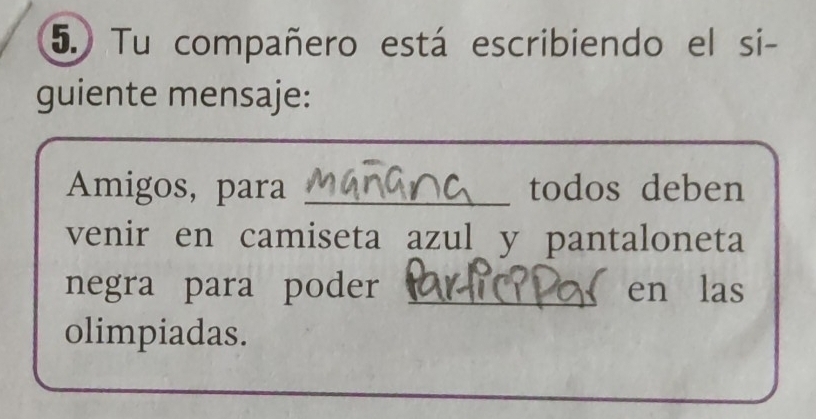 5. Tu compañero está escribiendo el si-
guiente mensaje:
Amigos, para mañana todos deben
venir en camiseta azul y pantaloneta
negra para poder participar en las
olimpiadas.